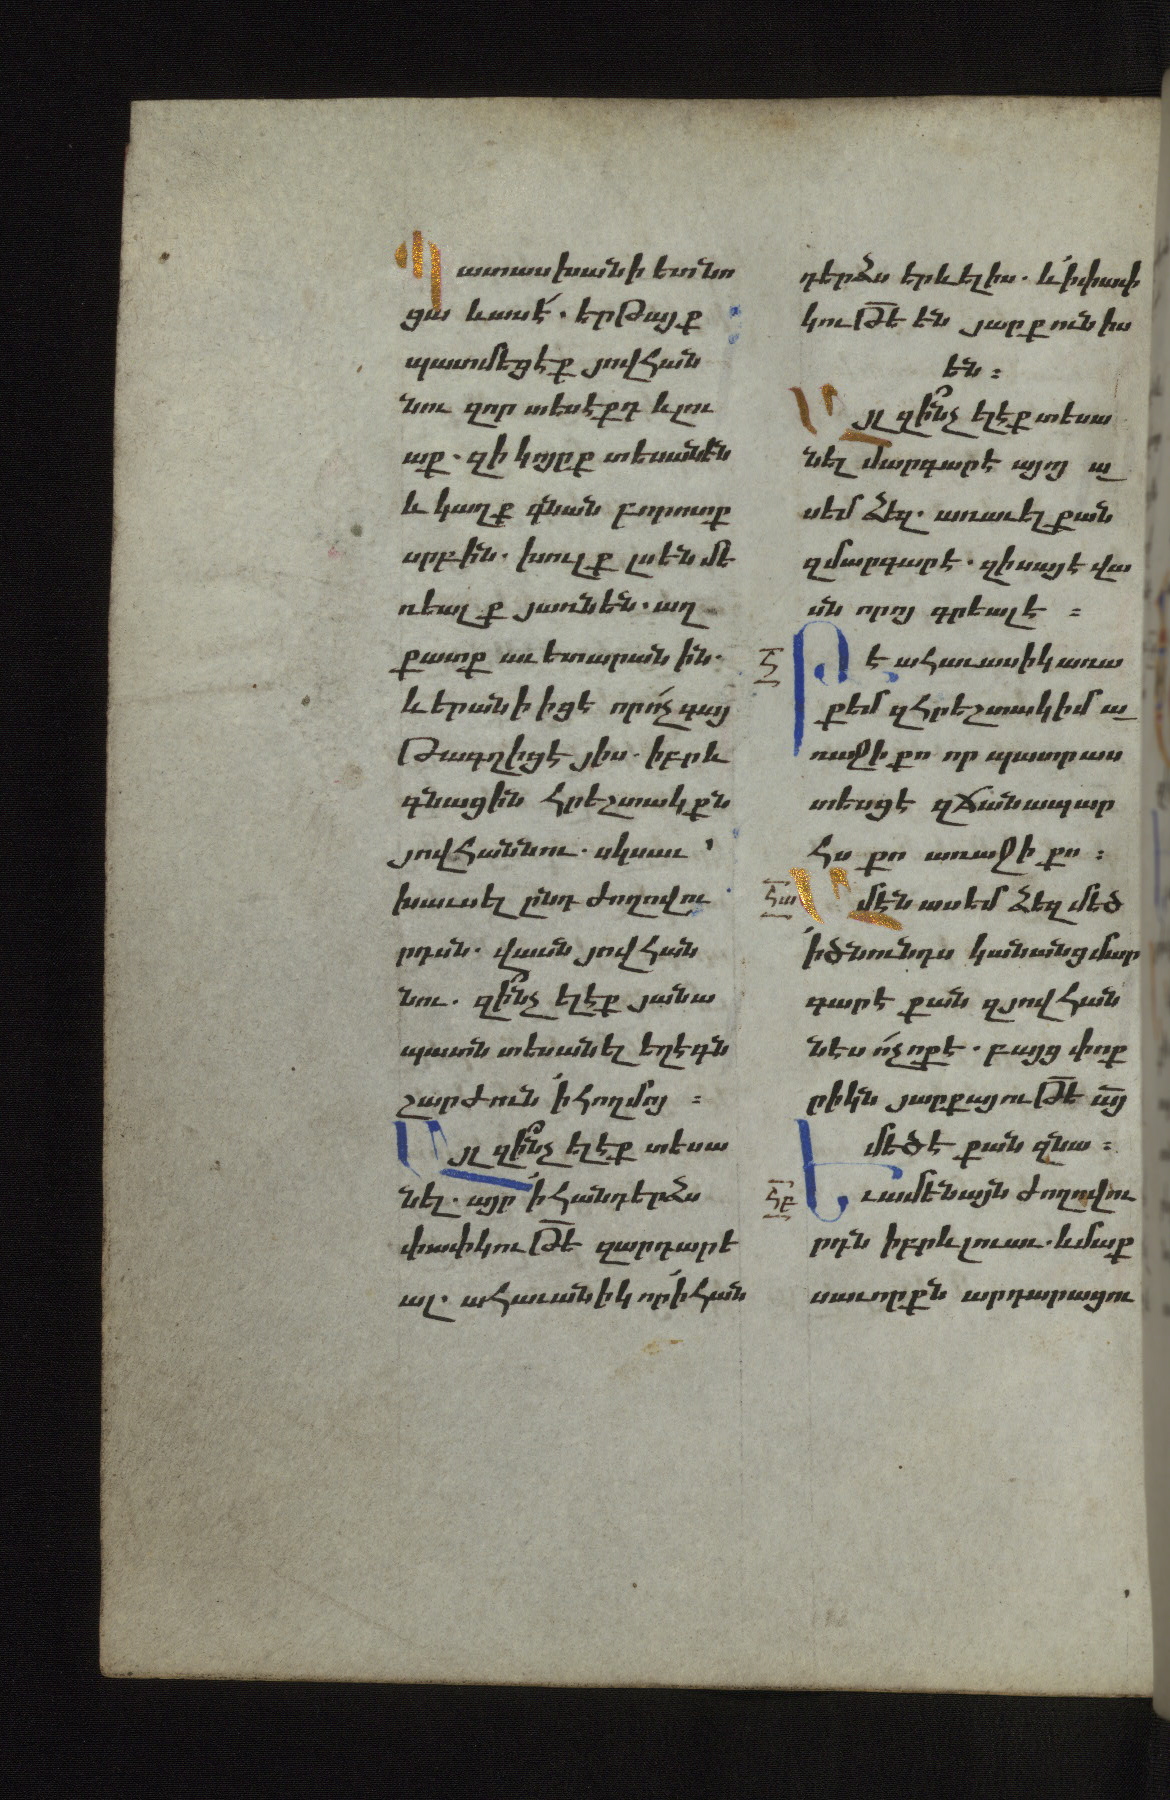 Պատասխանի ետ նո
ցա և ասէ. երթայք
պատմեցէք յովհան
նու զոր տեսէքդ և լու
աք. զի կոյրք տեսանեն
և կաղք գնան բորոտք
սրբին. խուլք լսեն մե
ռեալք յառնեն. աղ
քատք աւետարանին.
և երանի իցէ որ ոչ գայ
թագղիցէ յիս. իբրև
գնացին հրեշտակքն
յովհաննու. սկսաւ
խաւսել ընդ ժողովու
րդսն. վասն յովհան
նու. զի՞նչ ելէք յանա
պատն տեսանել եղէգն
շարժուն ի հողմոյ :
Այլ զի՞նչ ելէք տեսա
նել. այր ի հանդերձս
փափկութե զարդարե
ալ. ահաւանիկ որ ի հան
դերձս երևելիս. և ի փափ
կութե են յարքունիս
են :
Այլ զի՞նչ ելէք տեսա
նել մարգարէ այոյ ա
սեմ ձեզ. առաւել քան
զմարգարէ. զի սայ է վա
սն որոյ գրեալ է :
Հ
Թէ ահաւասիկ առա
քեմ զհրեշտակ իմ ա
ռաջի քո որ պատրաս
տեսցէ զճանապար
հս քո առաջի քո :
ՀԱ
Ամէն ասեմ ձեզ մեծ
ի ծնունդս կանանց մար
գարէ քան զյովհան
նէս ոչ ոք է. բայց փոք
րիկն յարքայութե այ
մեծ է քան զնա :
ՀԲ
Եւ ամենայն ժողովու
րդն իբրև լուաւ. և մաք
սաւորքն արդարացու